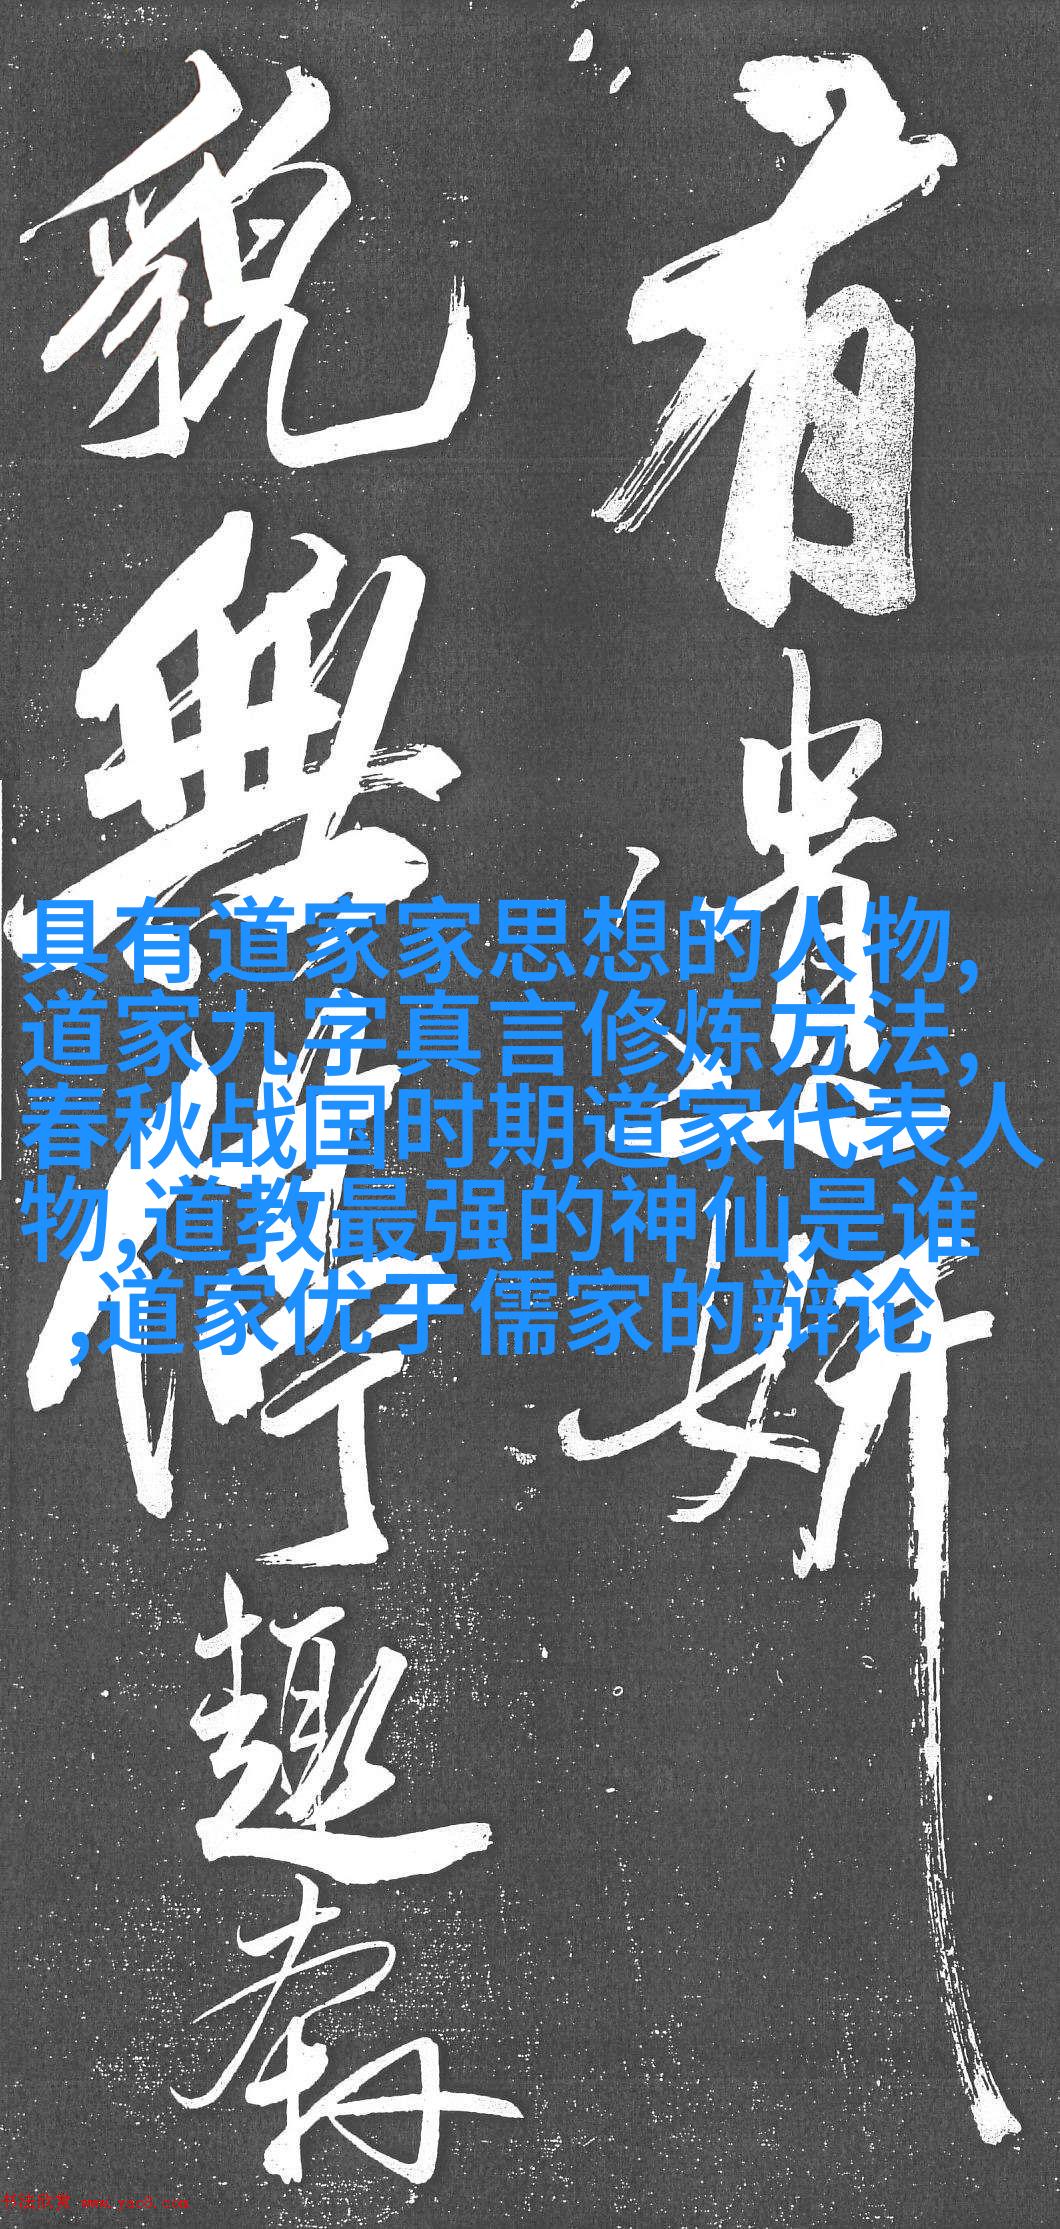 有遺妍
貌無停趣
具有道家家思想的人物,
道家九字真言修炼方法,
春秋战国时期道家代表人
物,道教最强的神仙是谁
,道家优于儒家的辩论
书法欣赏 www.yac8.com